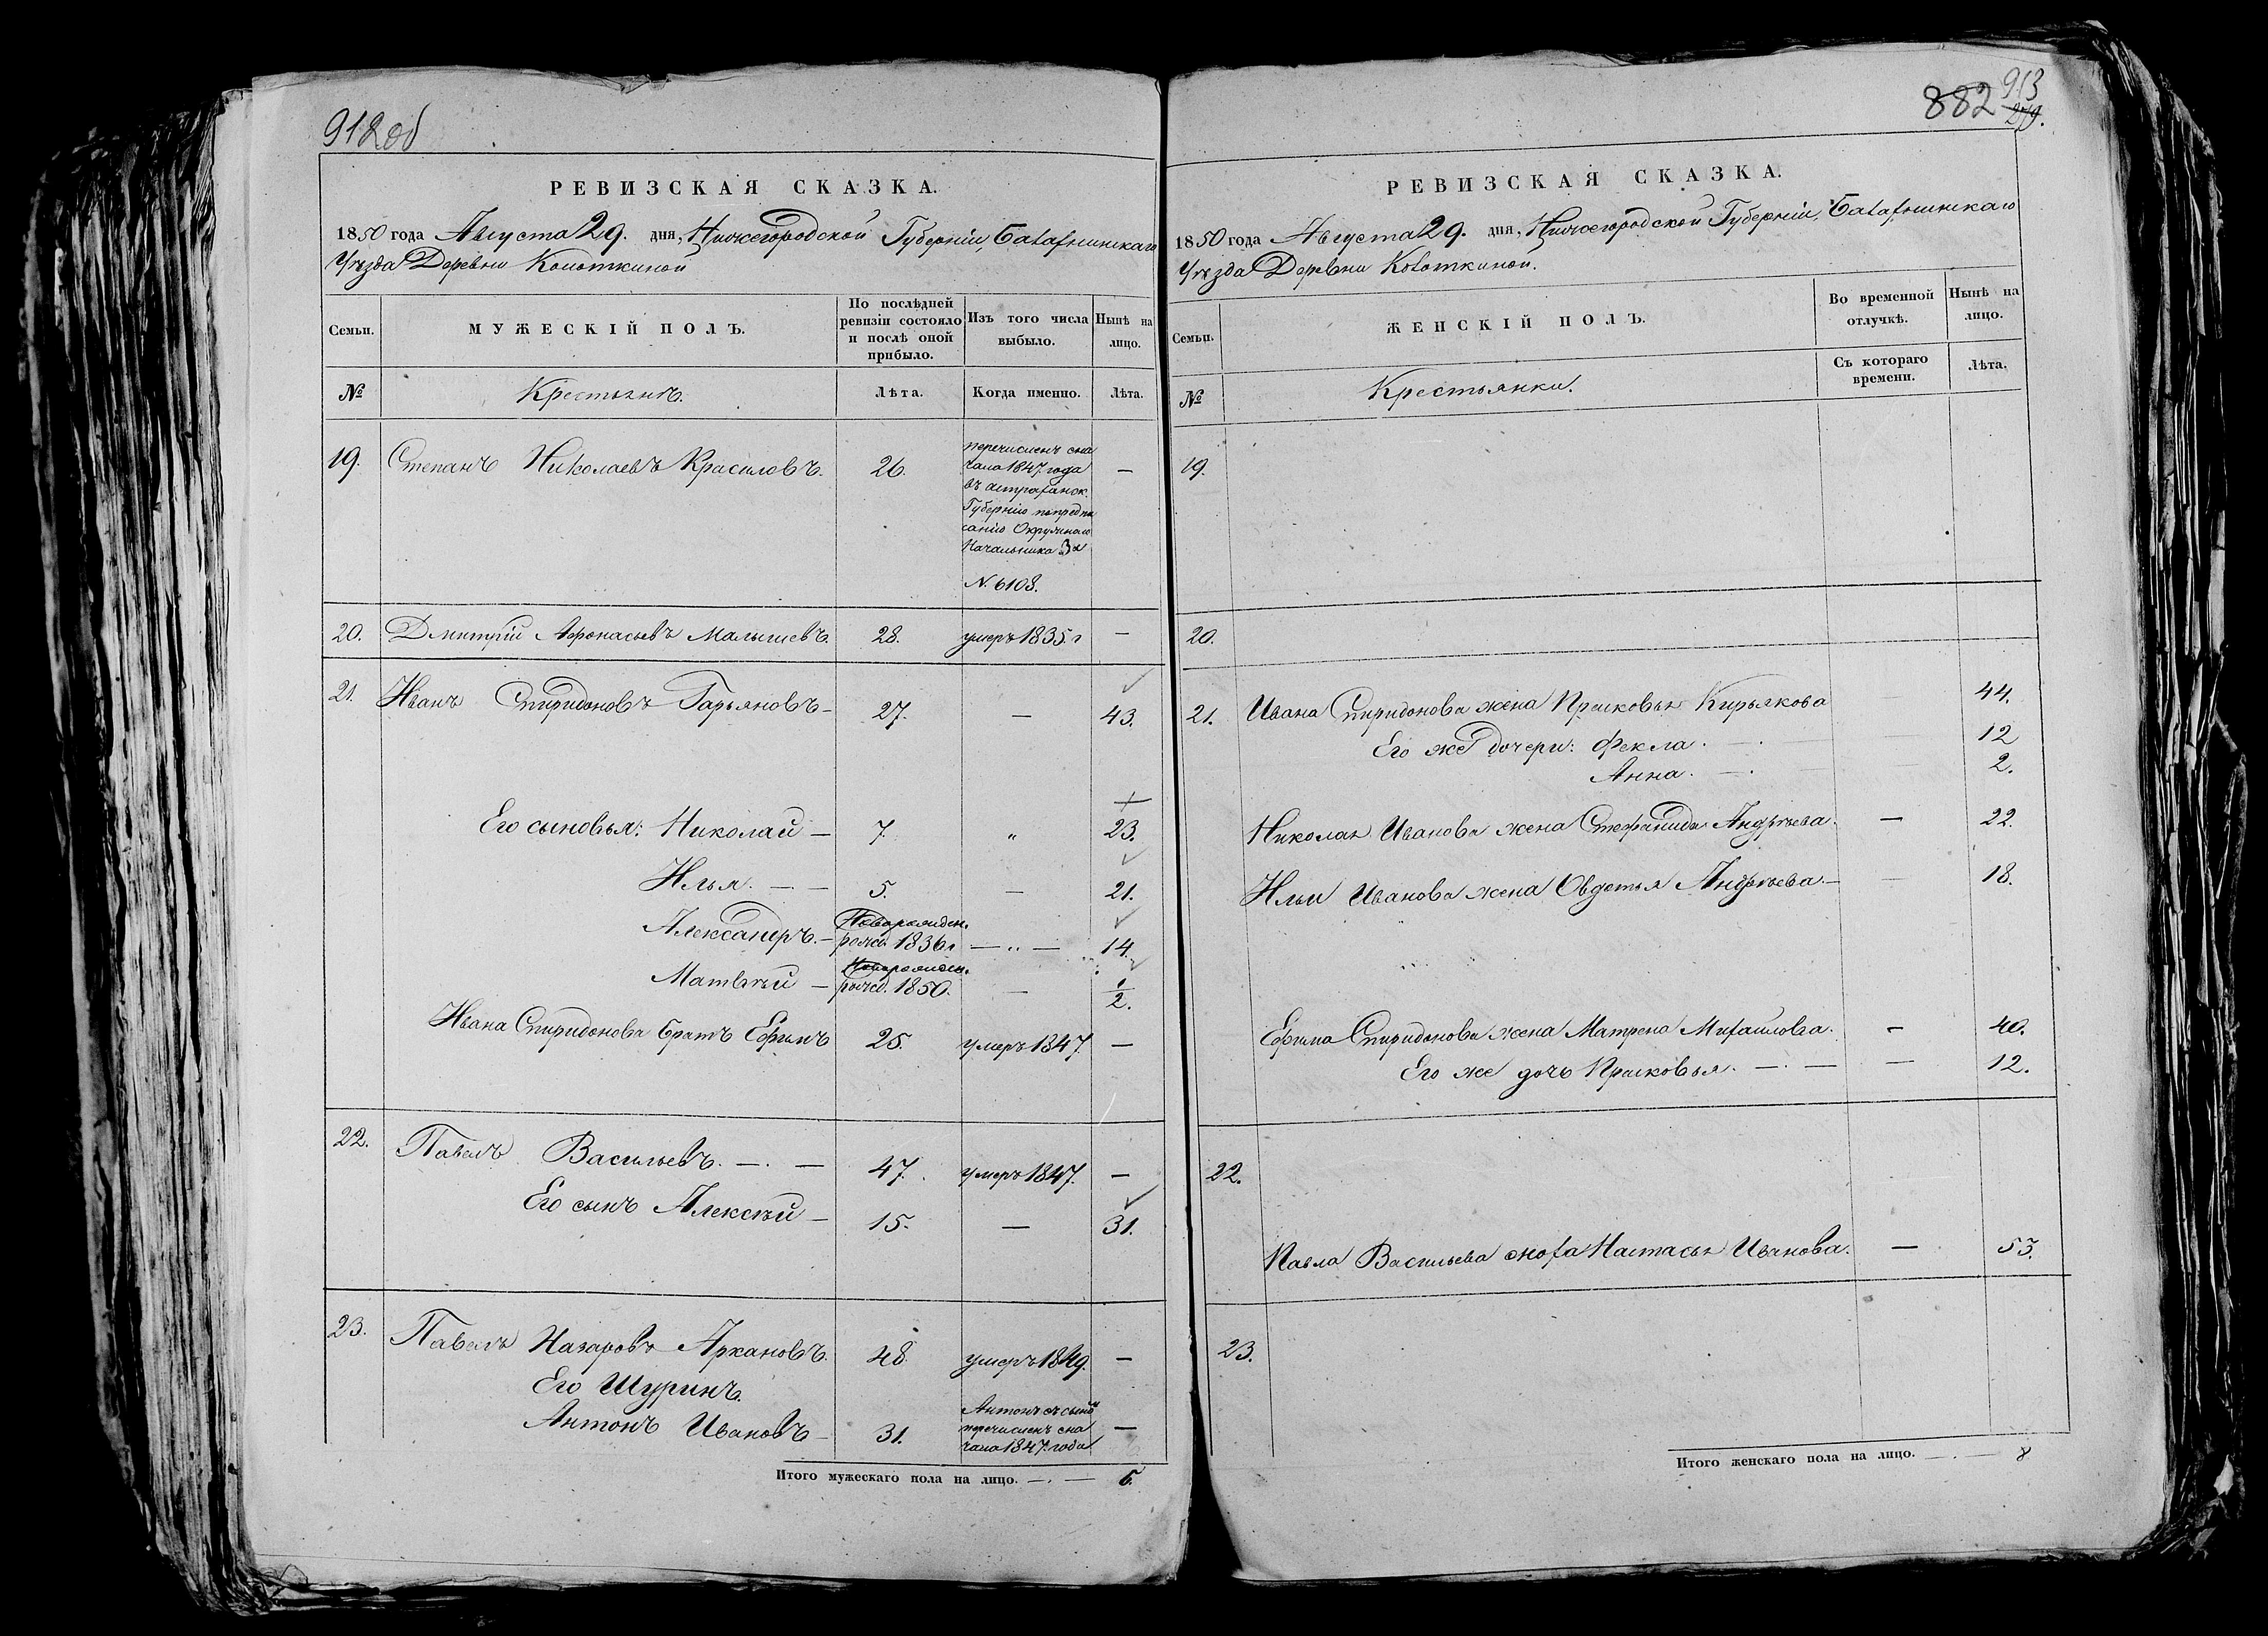 912 об
РЕВИЗСКАЯ СКАЗКА.
1850 года Августа 29. дня, Нижегородской Губерніи Балахнинскаго
Уѣзда Деревни Колоткиной
Семьи.
МУЖЕСКІЙ ПОЛЪ.
По послѣдней
ревизіи состояло
и послѣ оной
прибыло.
Изъ того числа
выбыло.
Нынѣ на
лицо.
№
Крестьянъ.
Лѣта.
Когда именно.
Лѣта.
19. Степанъ Николаевъ Красиловъ. 26. —
перечисленъ сна
чала 1847. года
въ астраханск.
Губернію по предпи
санію Окружнаго
Начальника За
N. 6108.
20. Дмитрій Афонасьевъ Малышевъ. 28. умеръ 1835. г —
21. Иванъ Спиридоновъ Гарьяновъ — 27. — 43.
Его сыновья: Николай — 7. „ 23.
Илья. — — 5. — 21.
Новорожден.
Александръ. — рожд. 1836 г — „ — 14.
Новорожден.
Матвѣй — рожд. 1850. — 1/2.
Ивана Спиридонова братъ Ефимъ 25. умеръ 1847. —
22. Павелъ Васильевъ. — . — 47. умеръ 1847. —
Его сынъ Алексѣй — 15. — 31.
23. Павелъ Назаровъ Аркановъ. 48. умеръ 1849. —
Его Шуринъ.
Антонъ Ивановъ — 31. —
Антонъ съ сыномъ
перечисленъ сна
чала 1847. года
Итого мужескаго пола на лицо. — . — 6.
882 913
279.
РЕВИЗСКАЯ СКАЗКА.
1850 года Августа 29. дня, Нижегородской Губерніи, Балахнинскаго
Уѣзда Деревни Колоткиной.
Семьи.
ЖЕНСКІЙ ПОЛЪ.
Во временной
отлучкѣ.
Нынѣ на
лицо.
№
Крестьянки.
Съ котораго
времени.
Лѣта.
19.
20.
21. Ивана Спиридонова жена Прасковья Кирьякова 44.
Его же дочери: Фекла. — . 12
Анна. — . 2.
Николая Иванова жена Стефанида Андрѣева. — 22.
Ильи Иванова жена Овдотья Андрѣева. — 18.
Ефима Спиридонова жена Матрена Михайлова. — 40.
Его же дочь Прасковья. — . — — 12.
22.
Павла Васильева сноха Настасья Иванова. — 53.
23.
Итого женскаго пола на лицо. — . — 8